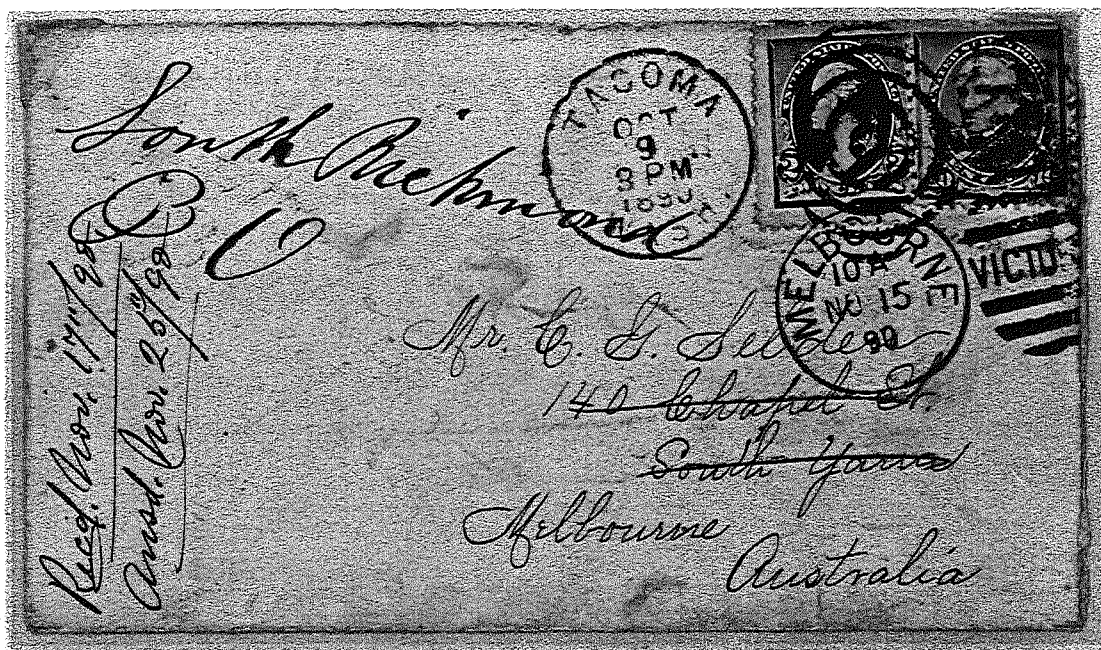 South Richmond
P O
TACOMA
OCT
9
8 PM
1890
WASH.
MELBOURNE
10 A
NO 15
90
VICTO
Mr. C. G.
140 Chapel St.
South Yarra
Melbourne
Australia
Recd. Nov. 17th/90
Ansd. Nov. 25th/90